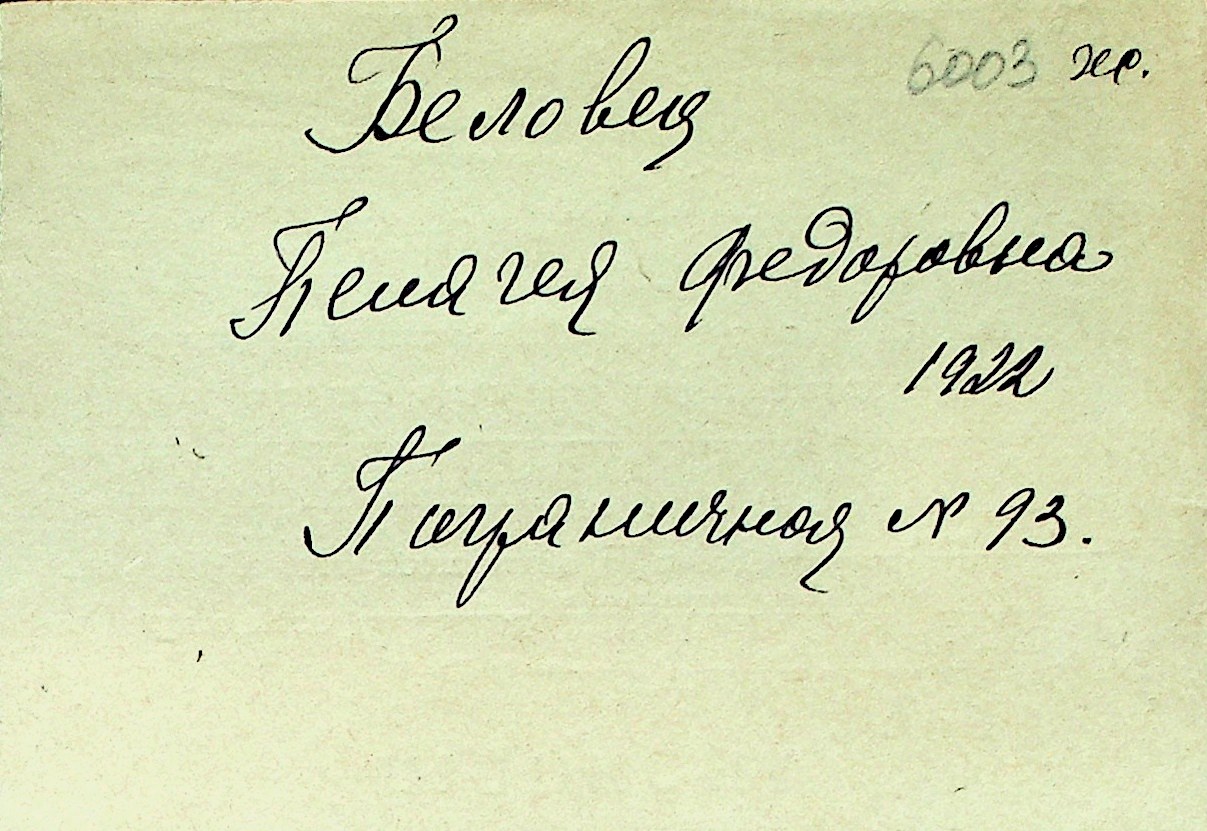 6003 же.
Беловец
Пелагея Федоровна
1922
Пограничная № 93.